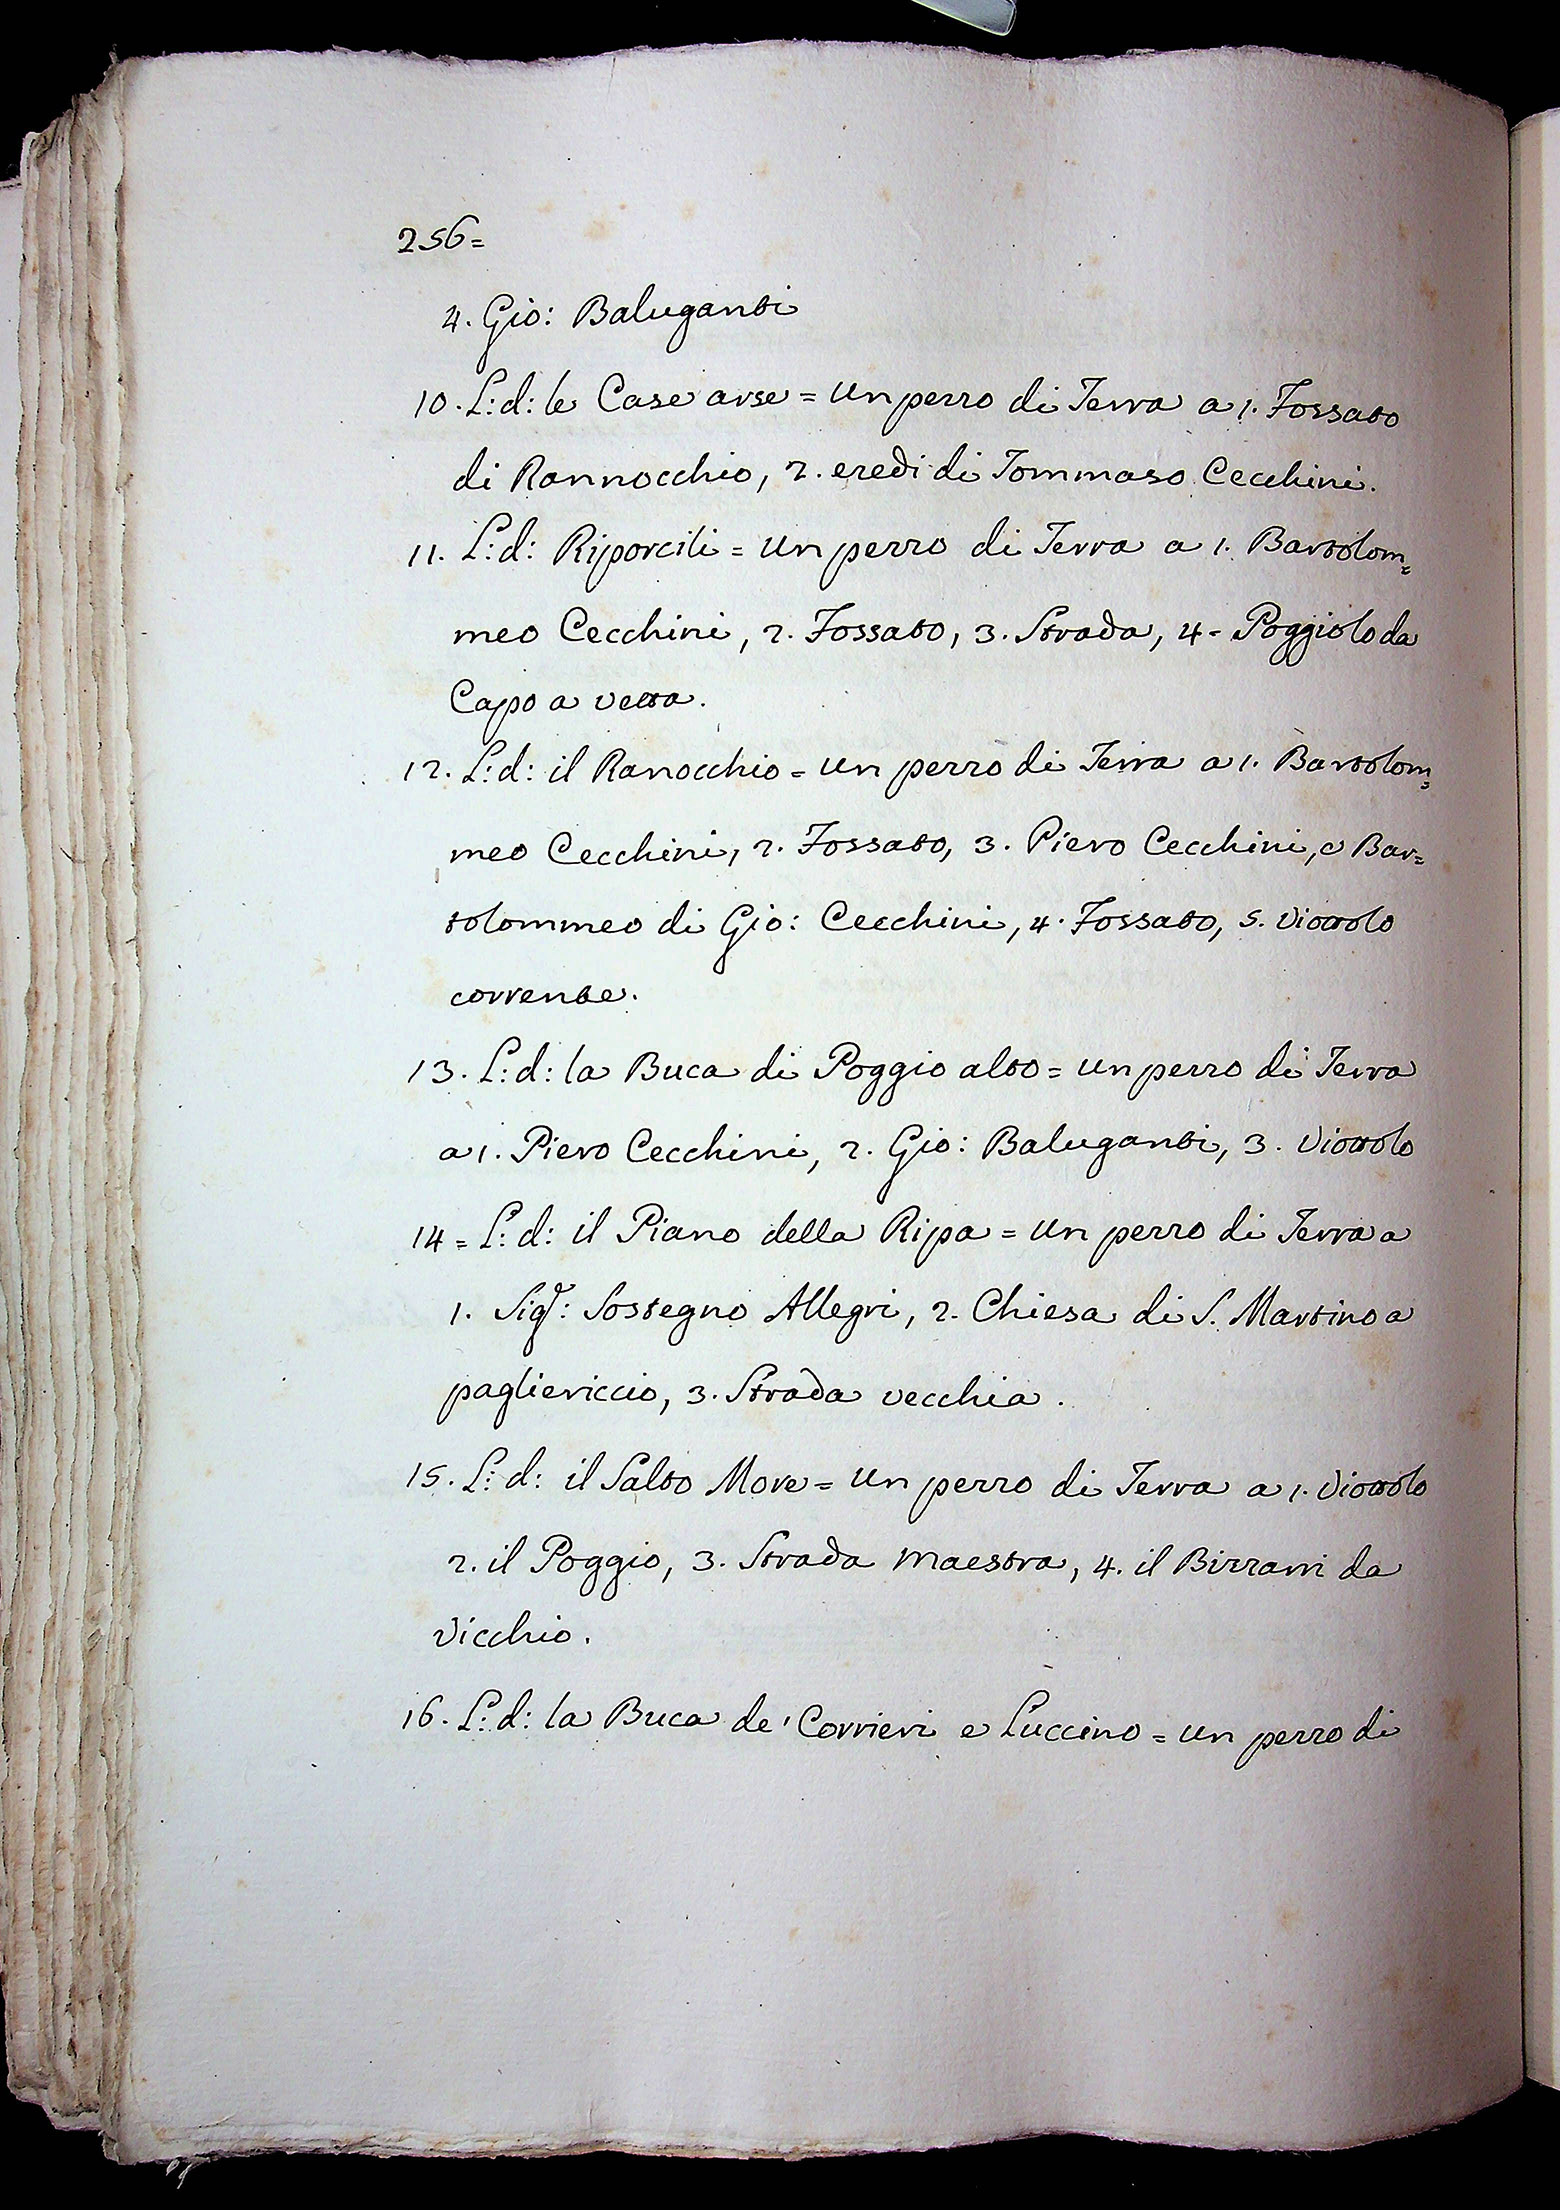 256=
4. Gio: Baluganti
10. L: d: le Case arse = un pezzo di Terra a 1. Fossato
di Rannocchio, 2. eredi di Tommaso Cecchini.
11. L: d: Riporcili = un pezzo di Terra a 1. Bartolom=
meo Cecchini, 2. Fossato, 3. Strada, 4 = Poggiolo da
Capo a vetta.
12. L: d: il Ranocchio = un pezzo di Terra a 1. Bartolom=
meo Cecchini, 2. Fossato, 3. Piero Cecchini, o Bar=
tolommeo di Gio: Cecchini, 4. Fossato, 5. Viottolo
corrente.
13. L: d: la Buca di Poggio alto = un pezzo di Terra
a 1. Piero Cecchini, 2. Gio: Baluganti, 3. Viottolo
14 = L: d: il Piano della Ripa = un pezzo di Terra a
1. Sigr: Sostegno Allegri, 2. Chiesa di S. Martino a
pagliericcio, 3. Strada vecchia.
15. L: d: il Salto More = un pezzo di Terra a 1. Viottolo
2. il Poggio, 3. Strada maestra, 4. il Bizzarri da
Vicchio.
16. L: d: la Buca de' Corrieri e Luccino = un pezzo di